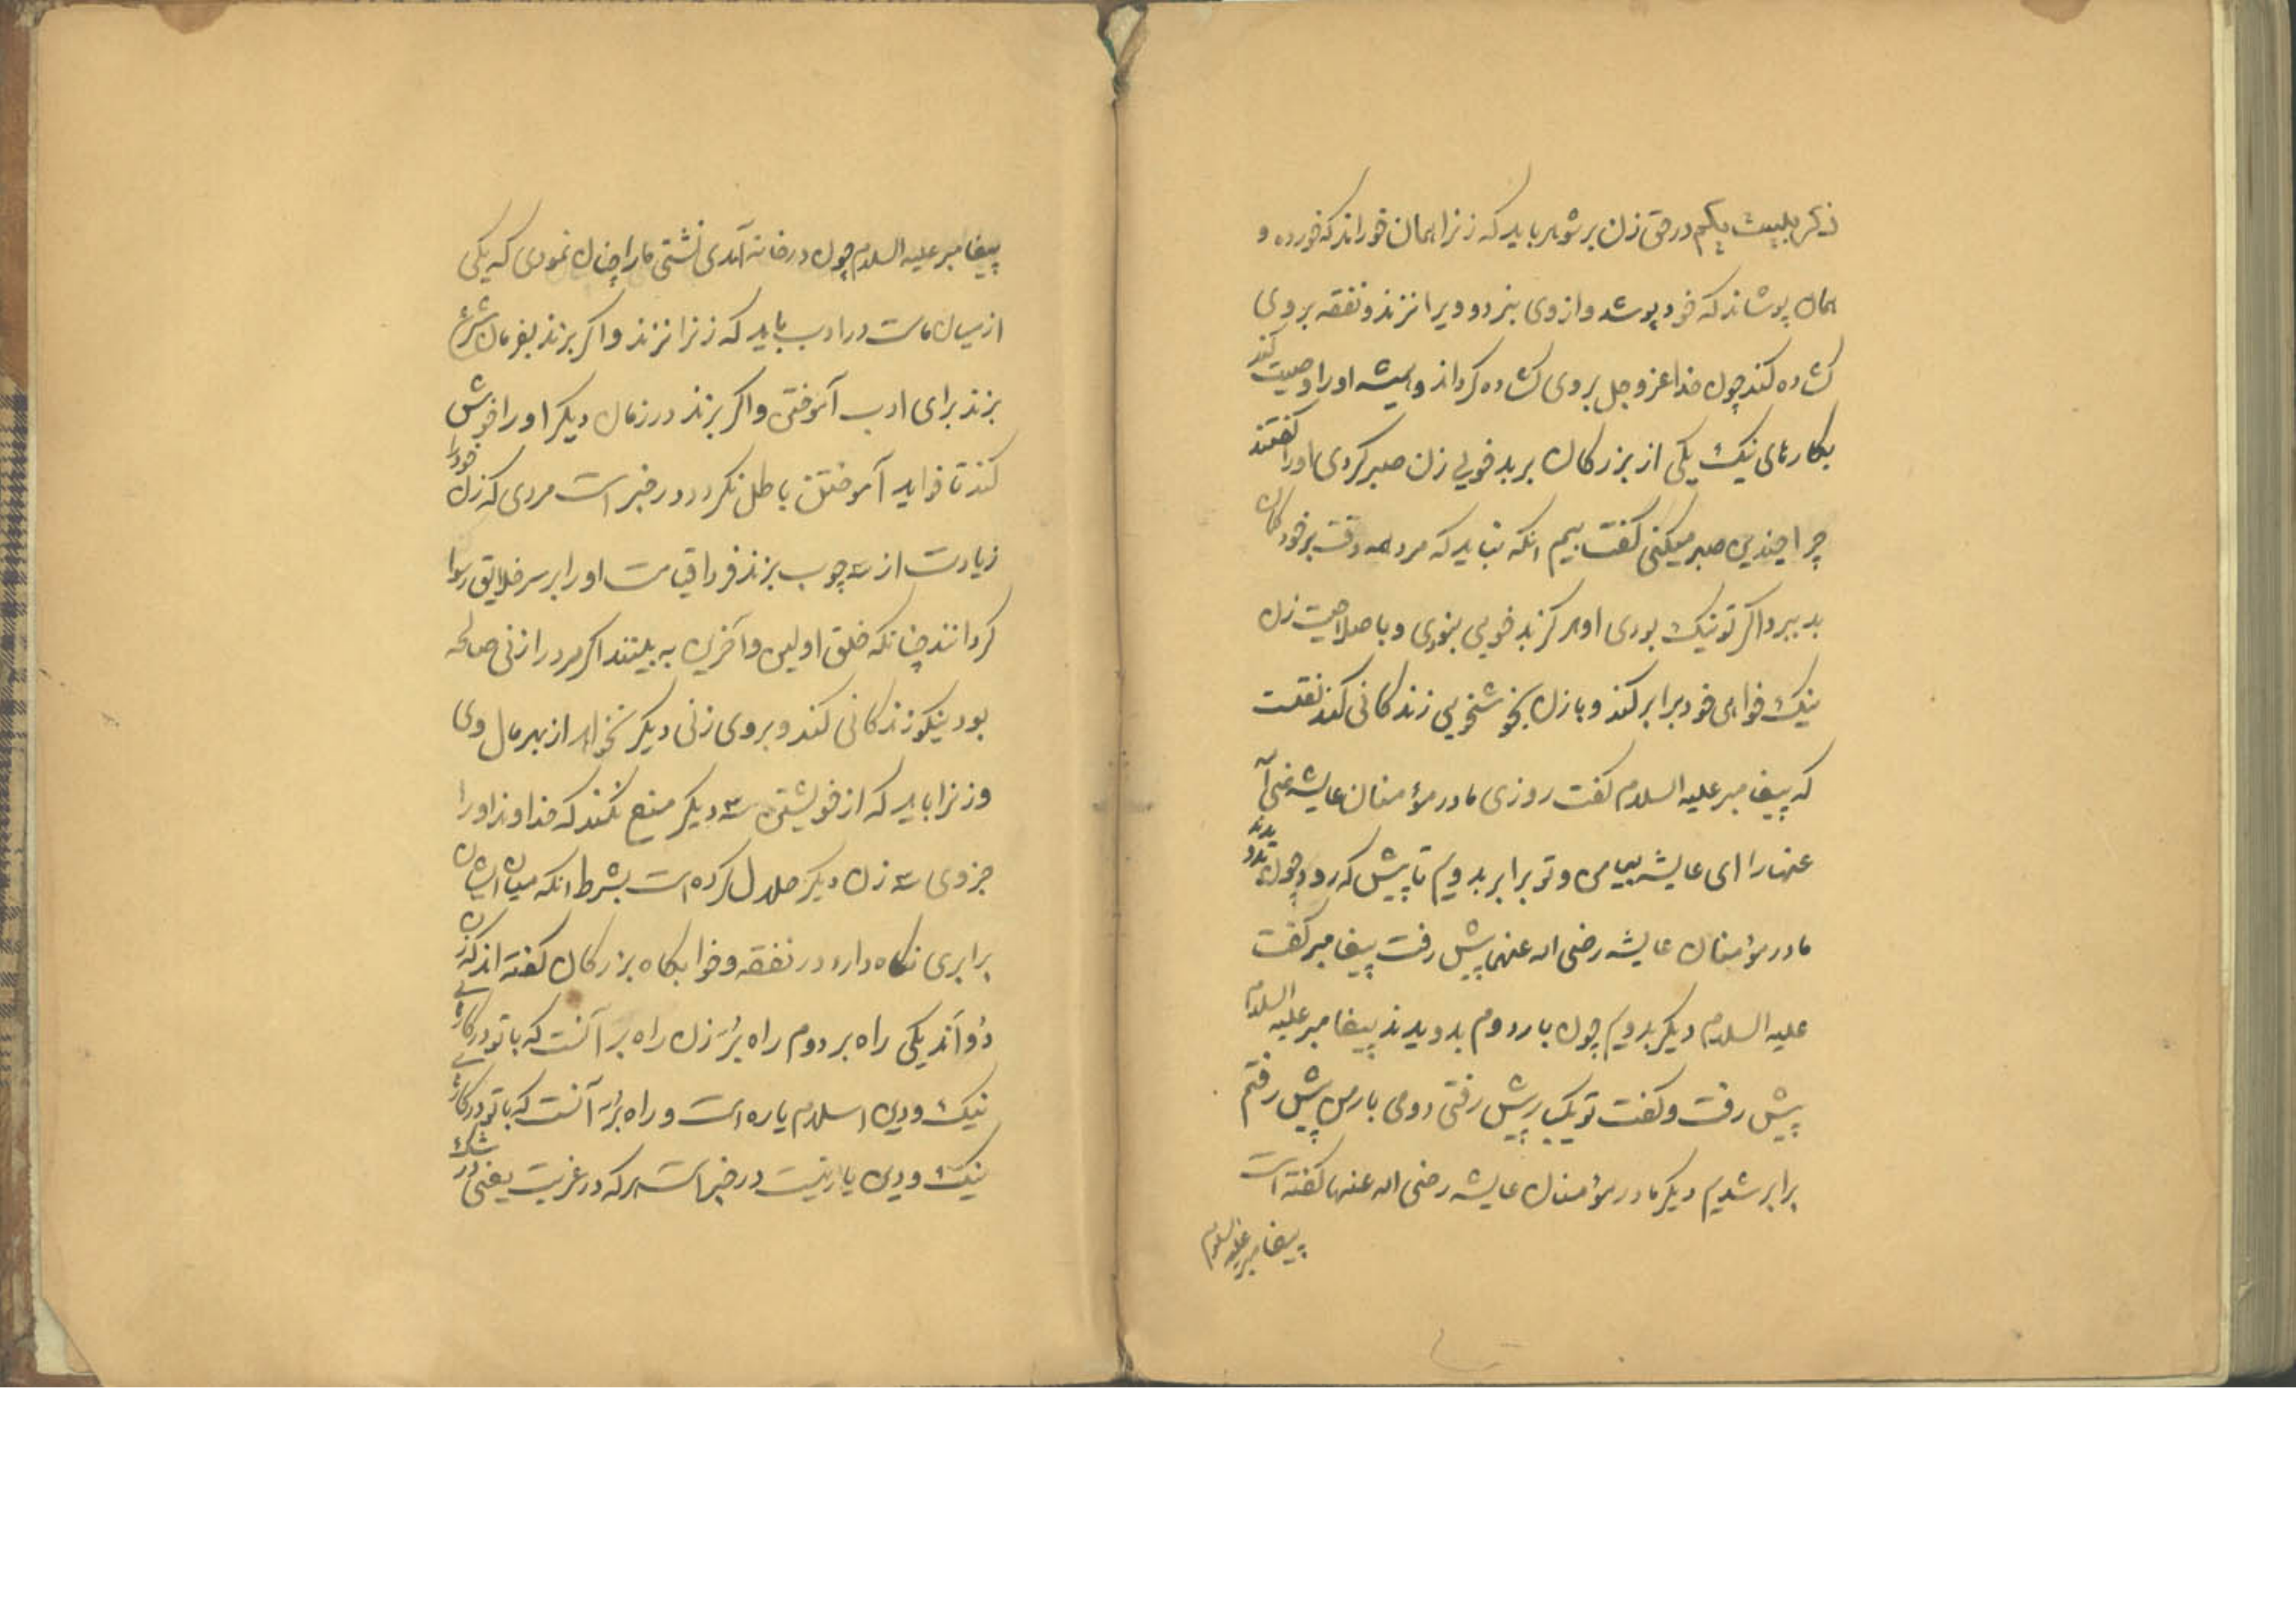 ذکر بیست یکم در حق زن بر شوهر باید که زنرا همان خوراند که خورده و
همان پوشاند که خود پوشد و از وی نبرد و ویرا نزند و نفقه بر وی
کشاده کند چون خدا عز و جل بر وی کشاده کرداند و همیشه او را وصیت کند
بکارهای نیک یکی از بزرکان بر بدخویی زن صبر کردی او را کفتند
چرا چندین صبر میکنی کفت بیم انکه نباید که مرد همه وقت بر خود کمان
بد ببرد اکر تو نیک بودی او هرکز بدخویی ننمودی و با صلاحیت زن
نیک خواهی خود برابر کند و با زن بخوشخویی زندکانی کند نقلست
که پیغامبر علیه السلام کفت روزی مادر مؤمنان عایشه رضی الله
عنها را ای عایشه بیا من و تو برابر بدویم تا پیش که رود چون بدویدند
مادر مؤمنان عایشه رضی الله عنها پیش رفت پیغامبر کفت
علیه السلام دیکر بدویم چون بار دوم بدویدند پیغامبر علیه السلام
پیش رفت و کفت تو یکبار پیش رفتی دومی بار من پیش رفتم
برابر شدیم دیکر مادر مؤمنان عایشه رضی الله عنها کفته است
پیغامبر علیه السلام
پیغامبر علیه السلام چون در خانه آمدی نشستی ما را چنان نمودی که یکی
از میان ماست در ادب باید که زنرا نزند و اکر بزند بفرمان شرع
بزند برای ادب آموختی و اکر بزند در زمان دیکر او را خوش
کند تا فواید آموختن باطل نکردد و در خبر است مردی که زن خود را
زیادت از سه چوب بزند فردا قیامت او را بر سر خلایق رسوا
کردانند چنانکه خلق اولین و آخرین به بینند اکر مرد را زنی صالحه
بود نیکو زندکانی کند و بر وی زنی دیکر نخواهد از بهر مال وی
و زنرا باید که از خویشتن سه دیکر منع نکند که خداوند او را
جز وی سه زن دیکر حلال کرده است بشرط انکه میان ایشان
برابری نکاه دارد در نفقه و خوابکاه بزرکان کفته اند که زن
دو اند یکی راه بر دوم راه بُر زن راه بر آنست که با تو در کارهای
نیک و دین اسلام یاره است و راه بُر آنست که با تو در کارهای
نیک و دین یار نیست در خبر است هر که در غربت یعنی در